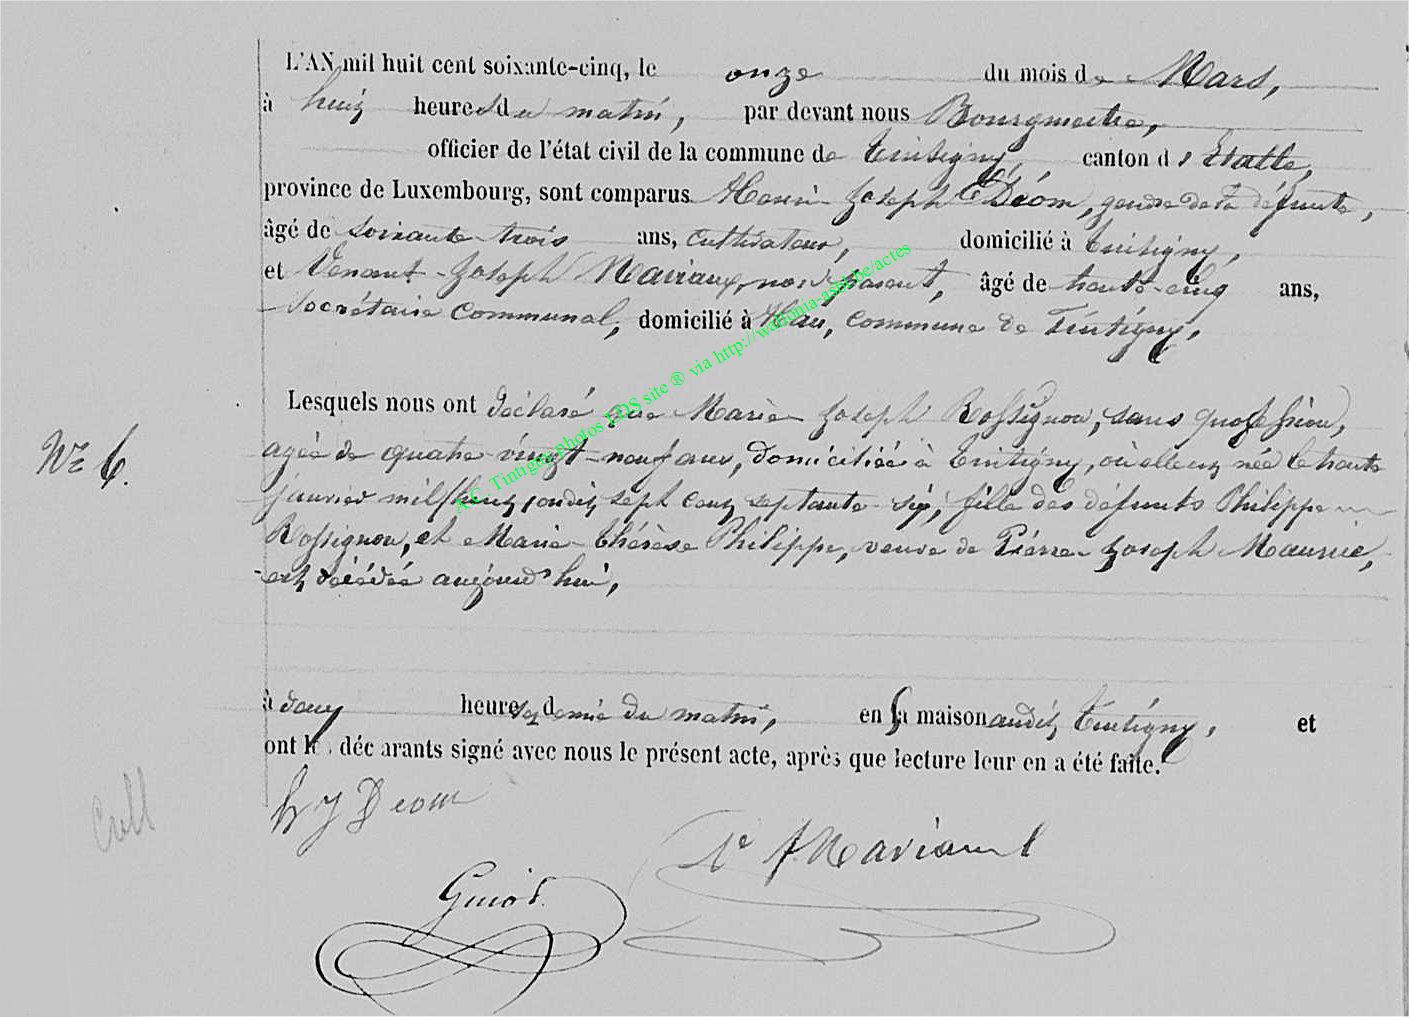 L'AN mil huit cent soixante-cinq, le onze du mois de Mars,
à huit heures du matin, par devant nous Bourgmestre,
officier de l'état civil de la commune de Tintigny, canton d'Etalle,
province de Luxembourg, sont comparus Henri Joseph Déom, gendre de la défunte,
âgé de soixante trois ans, cultivateur, domicilié à Tintigny,
et Venant-Joseph Maviaux, non parent, âgé de trente-cinq ans,
Secrétaire Communal, domicilié à Han, Commune de Tintigny,
Lesquels nous ont déclaré que Marie Joseph Rossignon, sans profession,
N° 6.
agée de quatre-vingt-neuf ans, domiciliée à Tintigny, où elle est née le trente
janvier mil sept cent septante-six, fille des défunts Philippe
Rossignon, et Marie-Thérèse Philippe, veuve de Pierre Joseph Maurice,
est décédée aujourd'hui,
à deux heures et demie du matin, en sa maison audit Tintigny, et
ont les déclarants signé avec nous le présent acte, après que lecture leur en a été faite.
h J Deom
Ve J Maviaux
Guiot.
A.C. Tintigny photos LDS site ® via http://wallonia-asbl.be/actes